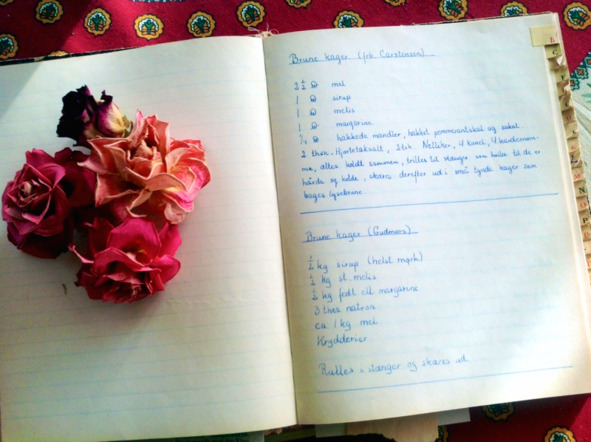 Brune kager (frk. Carstensen)
2 ½ ℔ mel
1 ℔ sirup
1 ℔ melis
1 ℔ margarine
¼ ℔ hakkede mandler, hakket pommeranskal og sukat.
2 thsk. Hjortetaksalt, 3 tsk. Nelliker, 4 kanel, 4 kardemom-
me, altes koldt sammen, trilles til stænger som hviler til de er
hårde og kolde, skæres derefter ud i små tynde kager som
bages lysebrune.
Brune kager (Gudmors)
½ kg sirup (helst mørk)
½ kg st. melis
½ kg fedt ell margarine
3 thsk natron
ca 1 kg mel
Krydderier
Rulles i stænger og skæres ud.